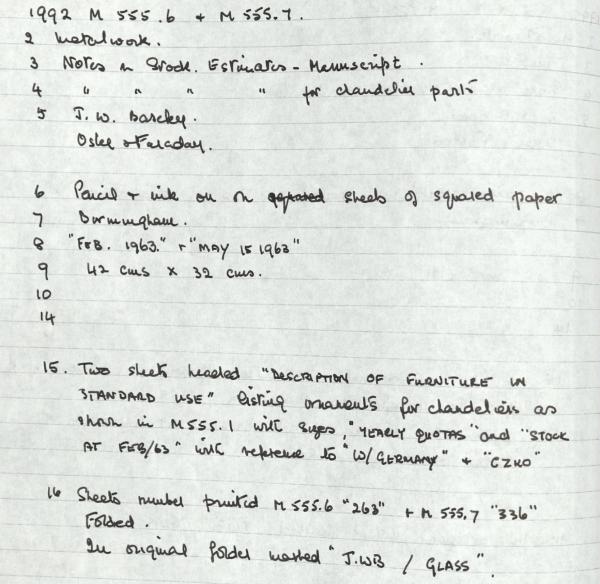 1992 M 555.6 + M 555.7.
2 Metalwork.
3 Notes on Stock. Estimates - Manuscript.
4 " " " " for chandelier parts
5 J.W. Barcley.
Osler & Faraday.
6 Pencil + ink on on squared sheets of squared paper
7 Birmingham.
8 "FEB. 1963." + "MAY 15 1963"
9 42 cms x 32 cms.
10
14
15. Two sheets headed "DESCRIPTION OF FURNITURE IN
STANDARD USE" listing ornaments for chandeliers as
shown in M555.1 with sizes, "YEARLY QUOTAS" and "STOCK
AT FEB/63" with reference to "W/GERMANY" + "CZKO"
16 Sheets number printed M 555.6 "263" + M 555.7 "336"
Folded.
In original folder marked "J.WB / GLASS".